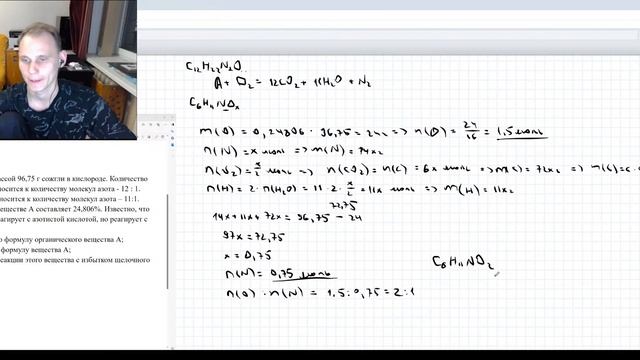 ссой 96,75 г сожгли в кислороде. Количество
носится к количеству молекул азота - 12 : 1.
носится к количеству молекул азота – 11:1.
веществе А составляет 24,806%. Известно, что
агирует с азотистой кислотой, но реагирует с
ю формулу органического вещества А;
формулу вещества А;
еакции этого вещества с избытком щелочного
C12H22N2O
A + O2 = 12CO2 + 11H2O + N2
C6H11NOx
m(O) = 0,24806 · 96,75 = 24г => n(O) = 24/16 = 1,5 моль
n(N) = x моль => m(N) = 14x г
n(N2) = x/2 моль => n(CO2) = n(C) = 6x моль => m(C) = 72x г => n(C)=
n(H) = 2 · n(H2O) = 11 · 2 · x/2 = 11x моль => m(H) = 11x г
72,75
14x + 11x + 72x = 96,75 – 24
97x = 72,75
x = 0,75
n(N) = 0,75 моль
n(O) : n(N) = 1,5 : 0,75 = 2 : 1
C6H11NO2